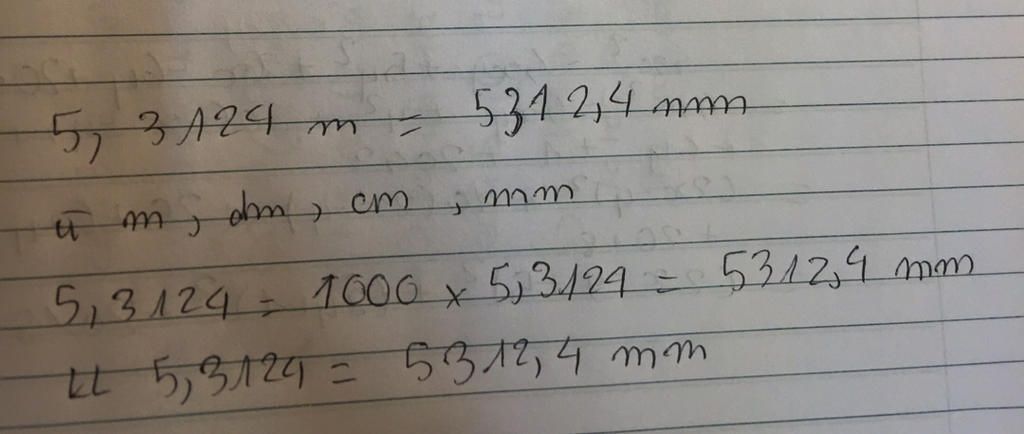 5, 3124 m = 5312,4 mm
ū m, dm, cm, mm
5,3124 = 1000 × 5,3124 = 5312,4 mm
5,3124 = 5312,4 mm